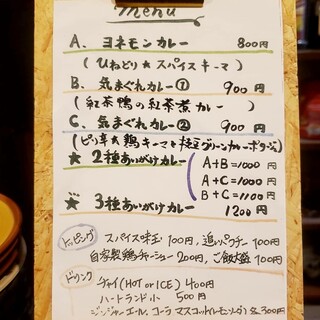 menu
A. ヨネモンカレー 800円
(ひねどり★スパイスキーマ)
B. 気まぐれカレー① 900円
(紅茶鴨の紅茶煮カレー)
C. 気まぐれカレー② 900円
(ピリ辛★鶏キーマと枝豆グリーンカレーポタージュ)
★2種あいがけカレー A+B=1000円
A+C=1000円
B+C=1100円
★3種あいがけカレー 1200円
トッピング スパイス味玉 100円, 追いパクチー 100円
自家製鶏チャーシュー 200円, ご飯大盛 100円
ドリンク チャイ(HOT or ICE) 400円
ハートランド小 500円
ジンジャーエール, コーラ 各300円